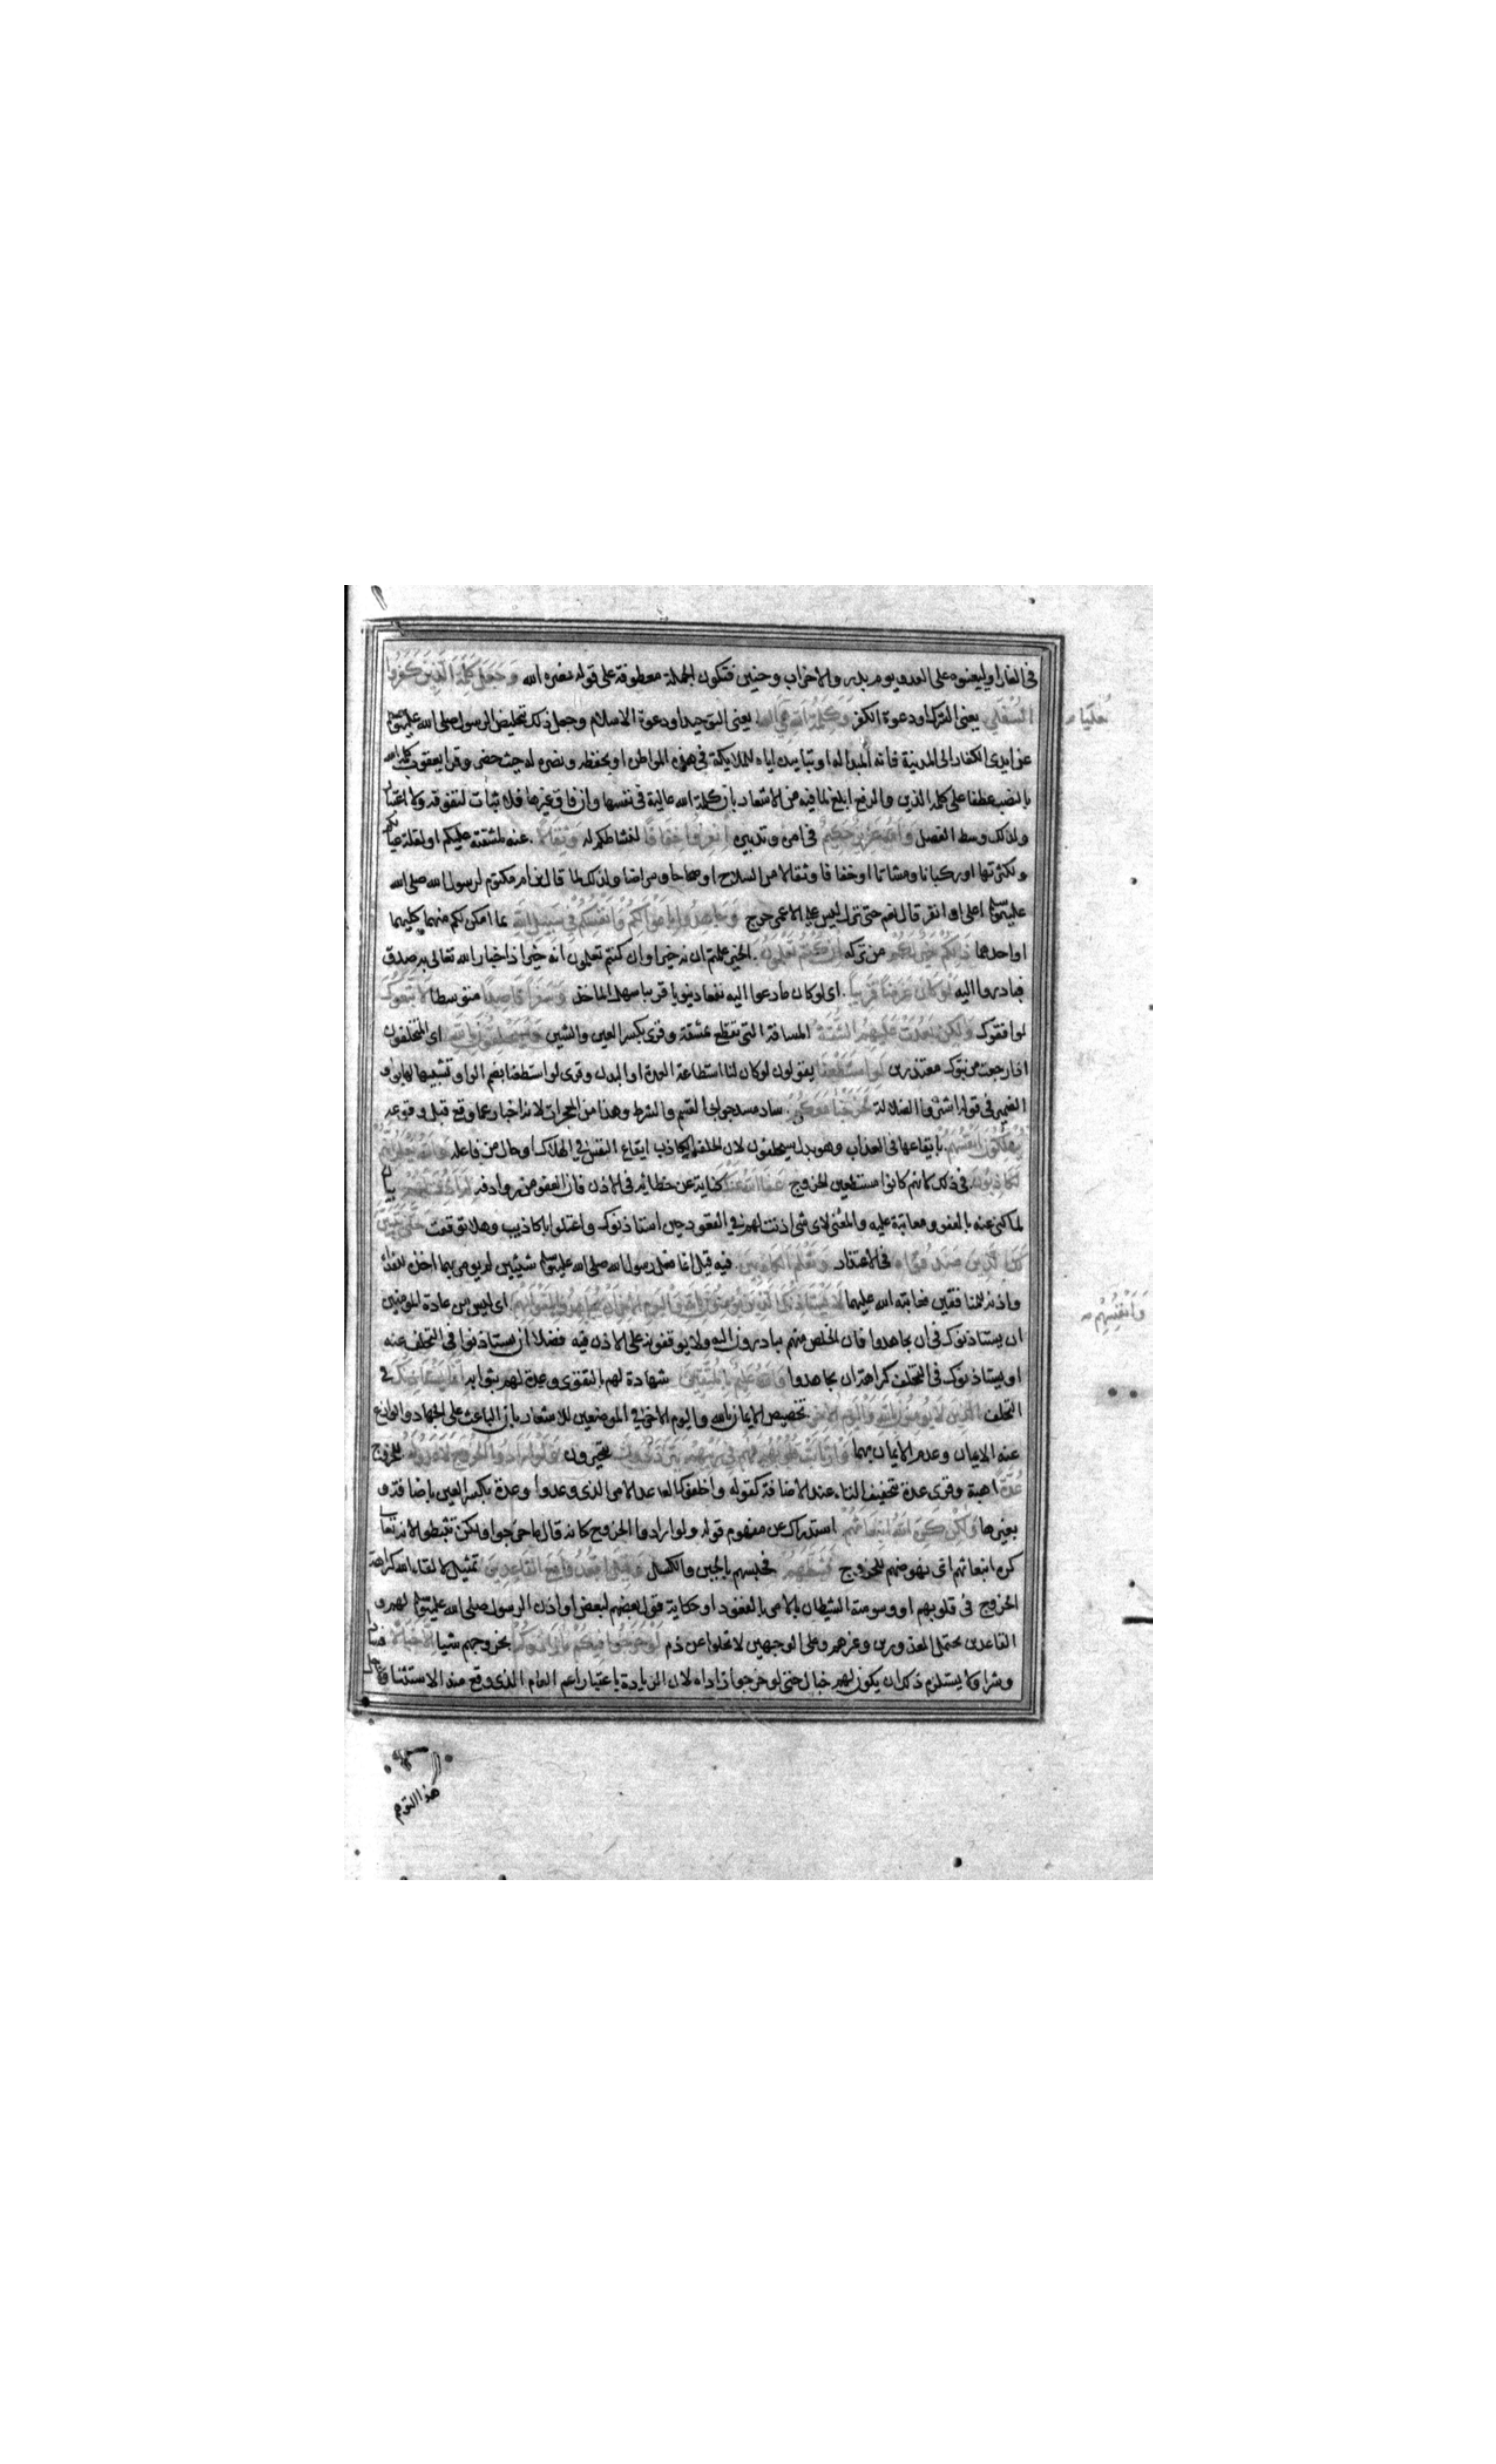 فى الغار او ليعينوه على العدو يوم بدر والاحزاب وحنين فتكون الجملة معطوفة على قوله نصره الله وَجَعَلَ كَلِمَةَ الَّذِينَ كَفَرُوا
السُّفْلَى يعنى الشرك او دعوة الكفر وَكَلِمَةُ اللَّهِ هِيَ العليا يعنى التوحيد او دعوة الاسلام وجعل ذلك تخليص الرسول صلى الله عليه وسلم
عن ايدى الكفار الى المدينة فانه المبدا له او بتاييده اياه بالملايكة فى هذه المواطن او بحفظه ونصره له حيث حضر وقرا يعقوب كلمة الله
بالنصب عطفا على كلمة الذين والرفع ابلغ لما فيه من الاشعار بان كلمة الله عالية فى نفسها وان فاق غيرها فلا ثبات لتفوقه ولا اعتبار
ولذلك وسط الفصل وَاللَّهُ عَزِيزٌ حَكِيمٌ فى امره وتدبيره انْفِرُوا خِفَافًا لنشاطكم له وَثِقَالًا عنه لمشقته عليكم او لقلة عيالكم
ولكثرتها او ركبانا ومشاتا او خفافا وثقالا من السلاح او صحاحا ومراضا ولذلك لما قال ابن ام مكتوم لرسول الله صلى الله
عليه وسلم اعلى ان انفر قال نعم حتى نزل ليس على الاعمى حرج وَجَاهِدُوا بِأَمْوَالِكُمْ وَأَنْفُسِكُمْ فِي سَبِيلِ اللَّهِ بما امكن لكم منهما كليهما
او احدهما ذَلِكُمْ خَيْرٌ لَكُمْ من تركه إِنْ كُنْتُمْ تَعْلَمُونَ الخير علمتم انه خير او ان كنتم تعلمون انه خير اذ اخبار الله تعالى به صدق
فبادروا اليه لَوْ كَانَ عَرَضًا قَرِيبًا اى لو كان ما دعوا اليه نفعا دينويا قريبا سهل الماخذ وَسَفَرًا قَاصِدًا متوسطا لَاتَّبَعُوكَ
لوافقوك وَلَكِنْ بَعُدَتْ عَلَيْهِمُ الشُّقَّةُ المسافة التى تقطع بمشقة وقرى بكسر العين والشين وَسَيَحْلِفُونَ بِاللَّهِ اى المتخلفون
اذا رجعت من تبوك معتذرين لَوِ اسْتَطَعْنَا يقولون لو كان لنا استطاعة العدة او البدن وقرى لو استطعنا بضم الواو تشبيها لها بواو
الضمير فى قوله اشتروا الضلالة لَخَرَجْنَا مَعَكُمْ ساد مسد جوابى القسم والشرط وهذا من المعجزات لانه اخبار عما وقع قبل وقوعه
يُهْلِكُونَ أَنْفُسَهُمْ بايقاعها فى العذاب وهو بدل سيحلفون لان الحلف الكاذب ايقاع النفس فى الهلاك او حال من فاعله وَاللَّهُ يَعْلَمُ إِنَّهُمْ
لَكَاذِبُونَ فى ذلك لانهم كانوا مستطعين الخروج عَفَا اللَّهُ عَنْكَ كناية عن خطائه فى الاذن فان العفو من روادفه لِمَ أَذِنْتَ لَهُمْ بيان
لما كنى عنه بالعفو ومعاتبة عليه والمعنى لاى شى اذنت لهم فى القعود حين استاذنوك واعتلوا باكاذيب وهلا توقفت حَتَّى يَتَبَيَّنَ
لَكَ الَّذِينَ صَدَقُوا فى الاعتذار وَتَعْلَمَ الْكَاذِبِينَ فيه قيل انما فعل رسول الله صلى الله عليه وسلم شيئين لم يومر بهما اخذه للفداء
واذنه للمنافقين فعاتبه الله عليهما لَا يَسْتَأْذِنُكَ الَّذِينَ يُؤْمِنُونَ بِاللَّهِ وَالْيَوْمِ الْآخِرِ أَنْ يُجَاهِدُوا بِأَمْوَالِهِمْ اى ليس من عادة المومنين
ان يستاذنوك فى ان يجاهدوا فان الخلص منهم يبادرون اليه ولا يوقفونه على الاذن فيه فضلا ان يستاذنوا فى التخلف عنه
او يستاذنوك فى التخلف كراهة ان يجاهدوا وَاللَّهُ عَلِيمٌ بِالْمُتَّقِينَ شهادة لهم بالتقوى وعدة لهم بثوابه إِنَّمَا يَسْتَأْذِنُكَ فى
التخلف الَّذِينَ لَا يُؤْمِنُونَ بِاللَّهِ وَالْيَوْمِ الْآخِرِ تخصيص الايمان بالله واليوم الاخر فى الموضعين للاشعار بان الباعث على الجهاد والوازع
عنه الايمان وعدم الايمان بهما وَارْتَابَتْ قُلُوبُهُمْ فَهُمْ فِي رَيْبِهِمْ يَتَرَدَّدُونَ يتحيرون وَلَوْ أَرَادُوا الْخُرُوجَ لَأَعَدُّوا لَهُ للخروج
عُدَّةً اهبة وقرى عدة بتخفيف التاء عند الاضافة كقوله واخلفوك عدا الامر الذى وعدوا وعدة بكسر العين باضافة و
بغيرها وَلَكِنْ كَرِهَ اللَّهُ انْبِعَاثَهُمْ استدراك عن مفهوم قوله ولو ارادوا الخروج كانه قال ما خرجوا ولكن تثبطوا لانه تعالى
كره انبعاثهم اى نهوضهم للخروج فَثَبَّطَهُمْ فحبسهم بالجبن والكسل وَقِيلَ اقْعُدُوا مَعَ الْقَاعِدِينَ تمثيل لالقاء الله كراهة
الخروج فى قلوبهم او وسوسة الشيطان بالامر بالقعود او حكاية قول بعضهم لبعض او اذن الرسول صلى الله عليه وسلم لهم و
القاعدين يحتمل المعذورين وغيرهم وعلى الوجهين لا يخلوا عن ذم لَوْ خَرَجُوا فِيكُمْ مَا زَادُوكُمْ بخروجهم شيا إِلَّا خَبَالًا فسادا
وشرا ولا يستلزم ذلك ان يكون لهم خبال حتى لو خرجوا زادواه لان الزيادة باعتبار اعم العام الذى وقع منه الاستثنا
العليا
وَأَنْفُسِهِمْ
هذا التوهم